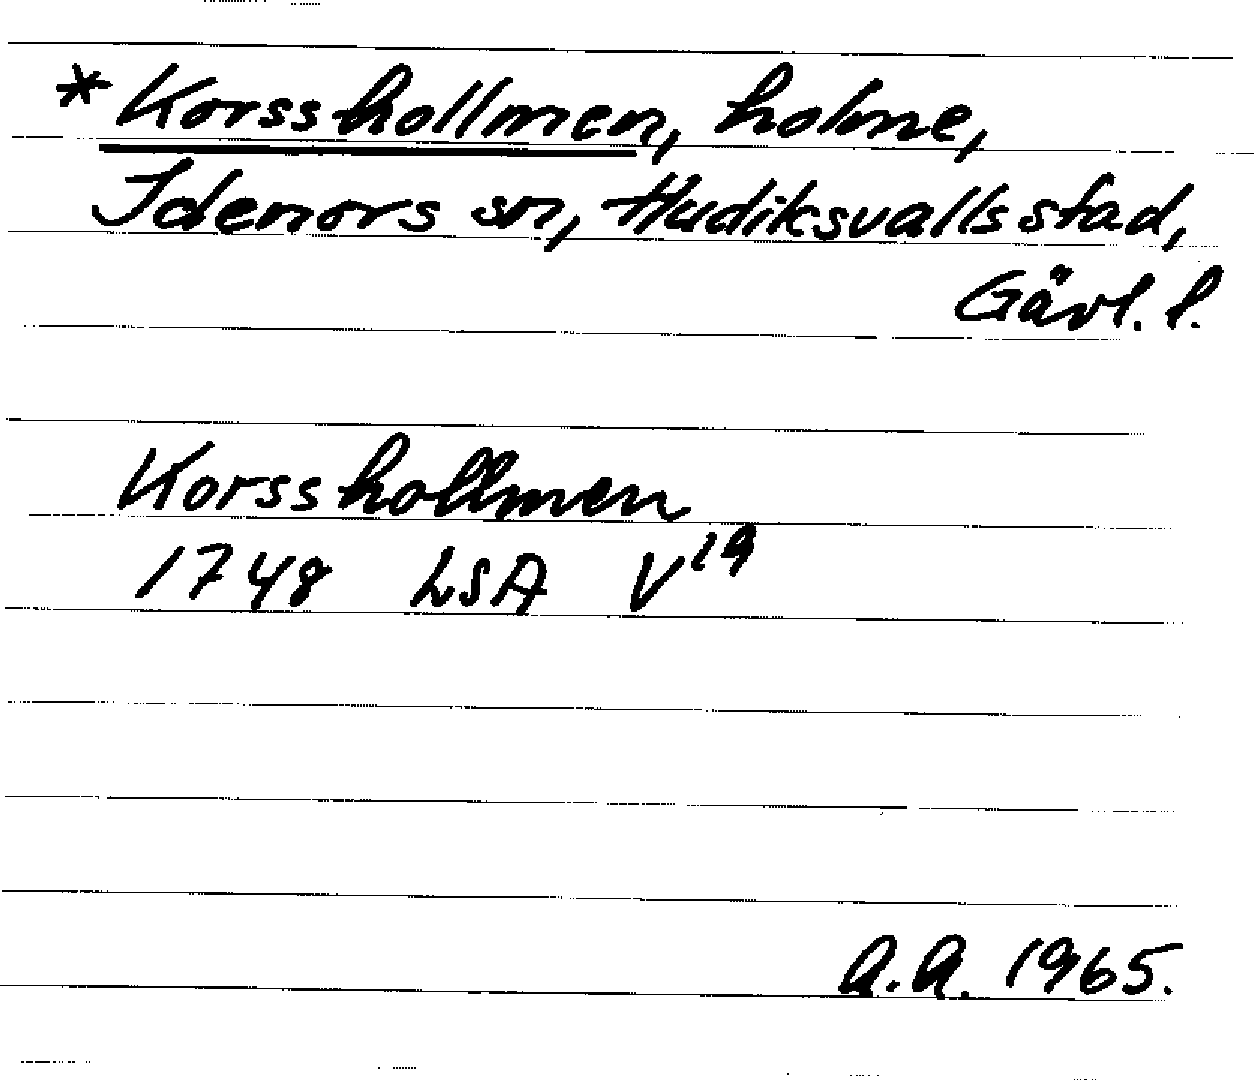 *Korsshollmen, holme,
Idenors sn, Hudiksvalls stad,
Gävl. l.
Korsshollmen
1748 LSA V¹⁹
A.A. 1965.